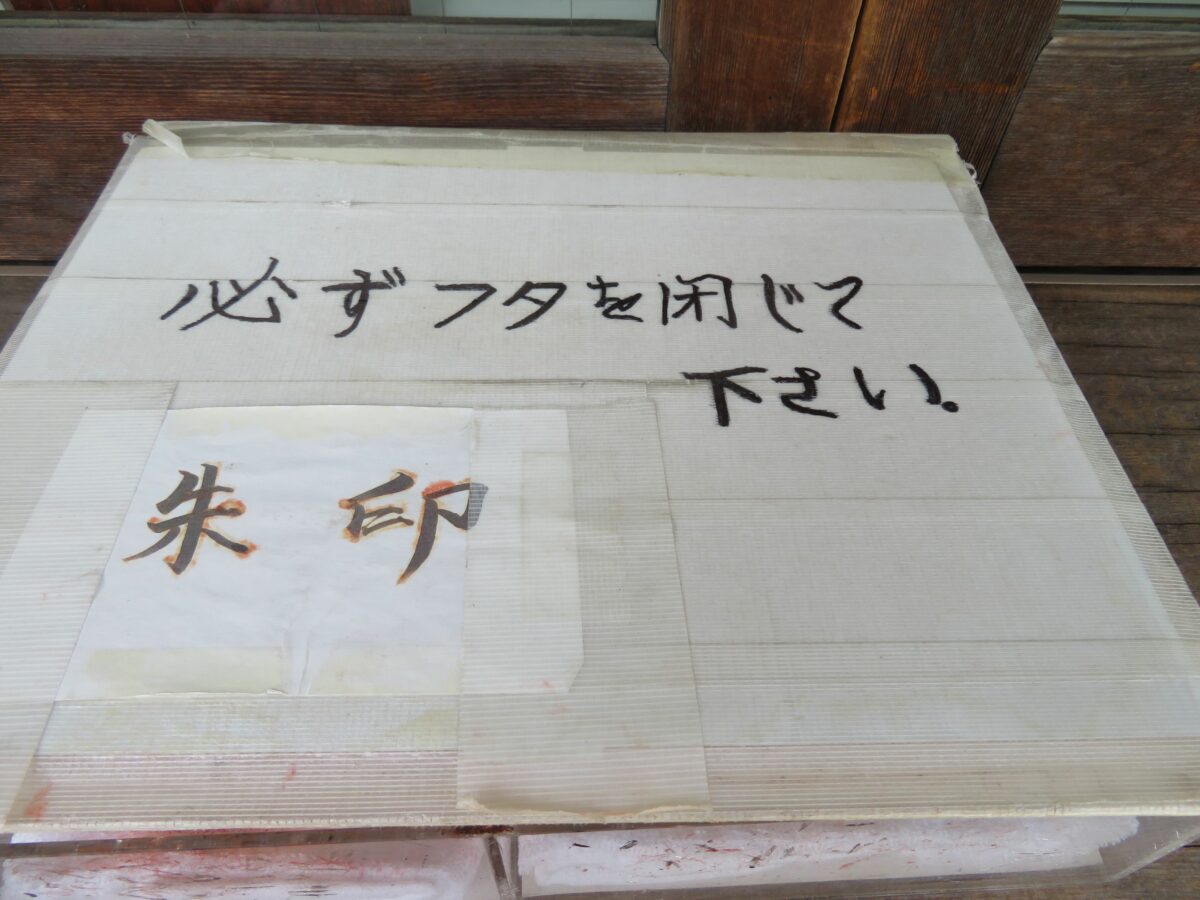 必ずフタを閉じて
下さい。
朱印